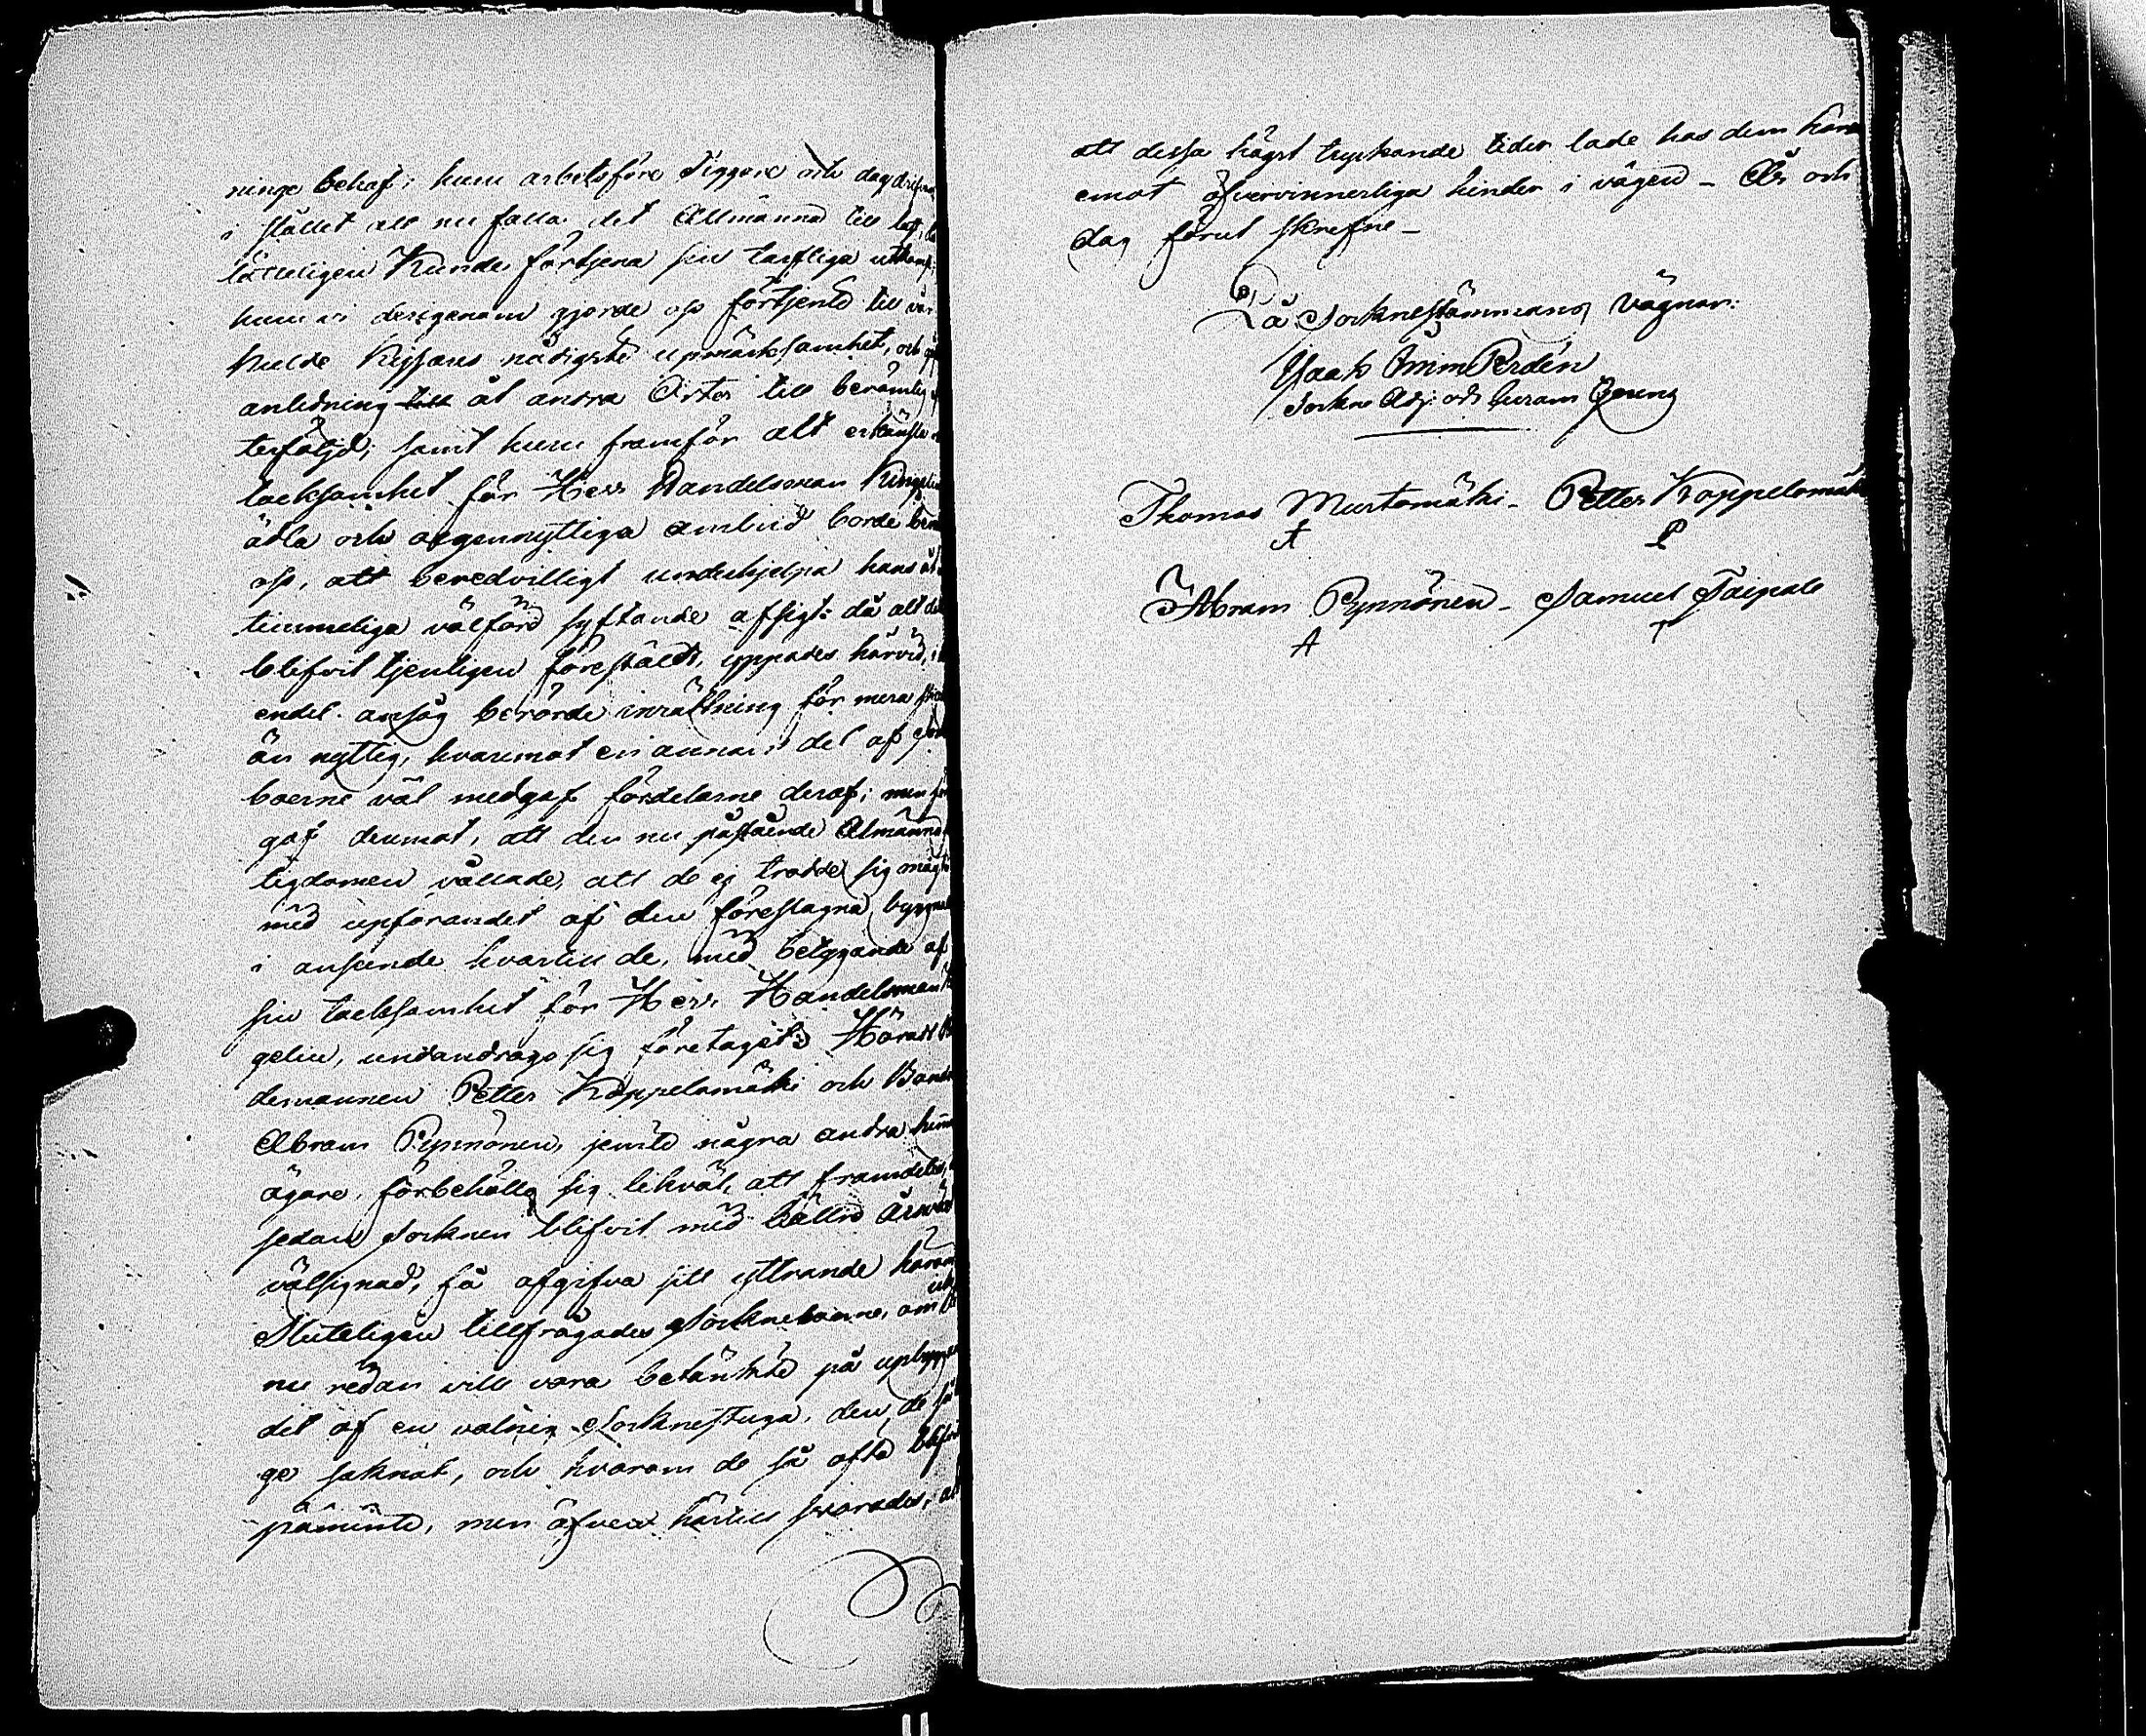 ringe behof; huru arbetsföre Tiggare och dagdrifva
i stället att nu falla det Allmänna till last,
lätteligen Kunde förtjena sin tarfliga utkomst;
huru vi derigenom gjorde oss förtjente till vår
hulde Kejsares nådigste upmärksamhet, och
anledning till åt andra Orter till berömlig ef
terföljd; samt huru framför alt erkänsla
tacksamhet för Herr Handelsman
ädla och oegennyttiga anbud borde
oss, att beredvilligt understjelpa hans
timmeliga välfärd syftande afsigt: då alt det
blifvit tjenligen förestäldt, yppades härvid,
endel ansåg berörde inrättning för mera
än nyttig, hvaremot en annan del af
boerne väl medgaf fördelarne deraf; men
gaf deremot, att den nu påstående Almänna
tigdomen vållade, att de ej trodde sig mägt
med upförandet af den föreslagna byggnad
i anseende hvartill de, med betygande af
sin tacksamhet för Herr Handelsman
gelin, undandrogo sig företaget. Härads
demannen Petter Koppelomäki och Bonde
Abram Pynnönen, jemte några andra
ägare, förbehöllo sig likväl, att framdeles,
sedan Socknen blifvit med bättre Årsväxt
välsignad, få afgifva sitt yttrande härom
Sluteligen tillfrågades Socknebonne, om
nu redan ville vara betänkte på upbyggan
det af en valnig Sockne Stuga, den de så
ge saknat, och hvarom de så ofta blifvit
påminte, men äfven härtill svarades, at
att dessa högst tryckande tider lade hos dem här
emot öfvervinnerliga hinder i vägen - År och
dag förut skrefne -
På Socknestämmans vägnar:
Isaak Perdén
Sockne Adj: och
Thomas Mustomäki - Petter Koppelomäki
P
Abram Pynnönen - Samuel Taipale
A T